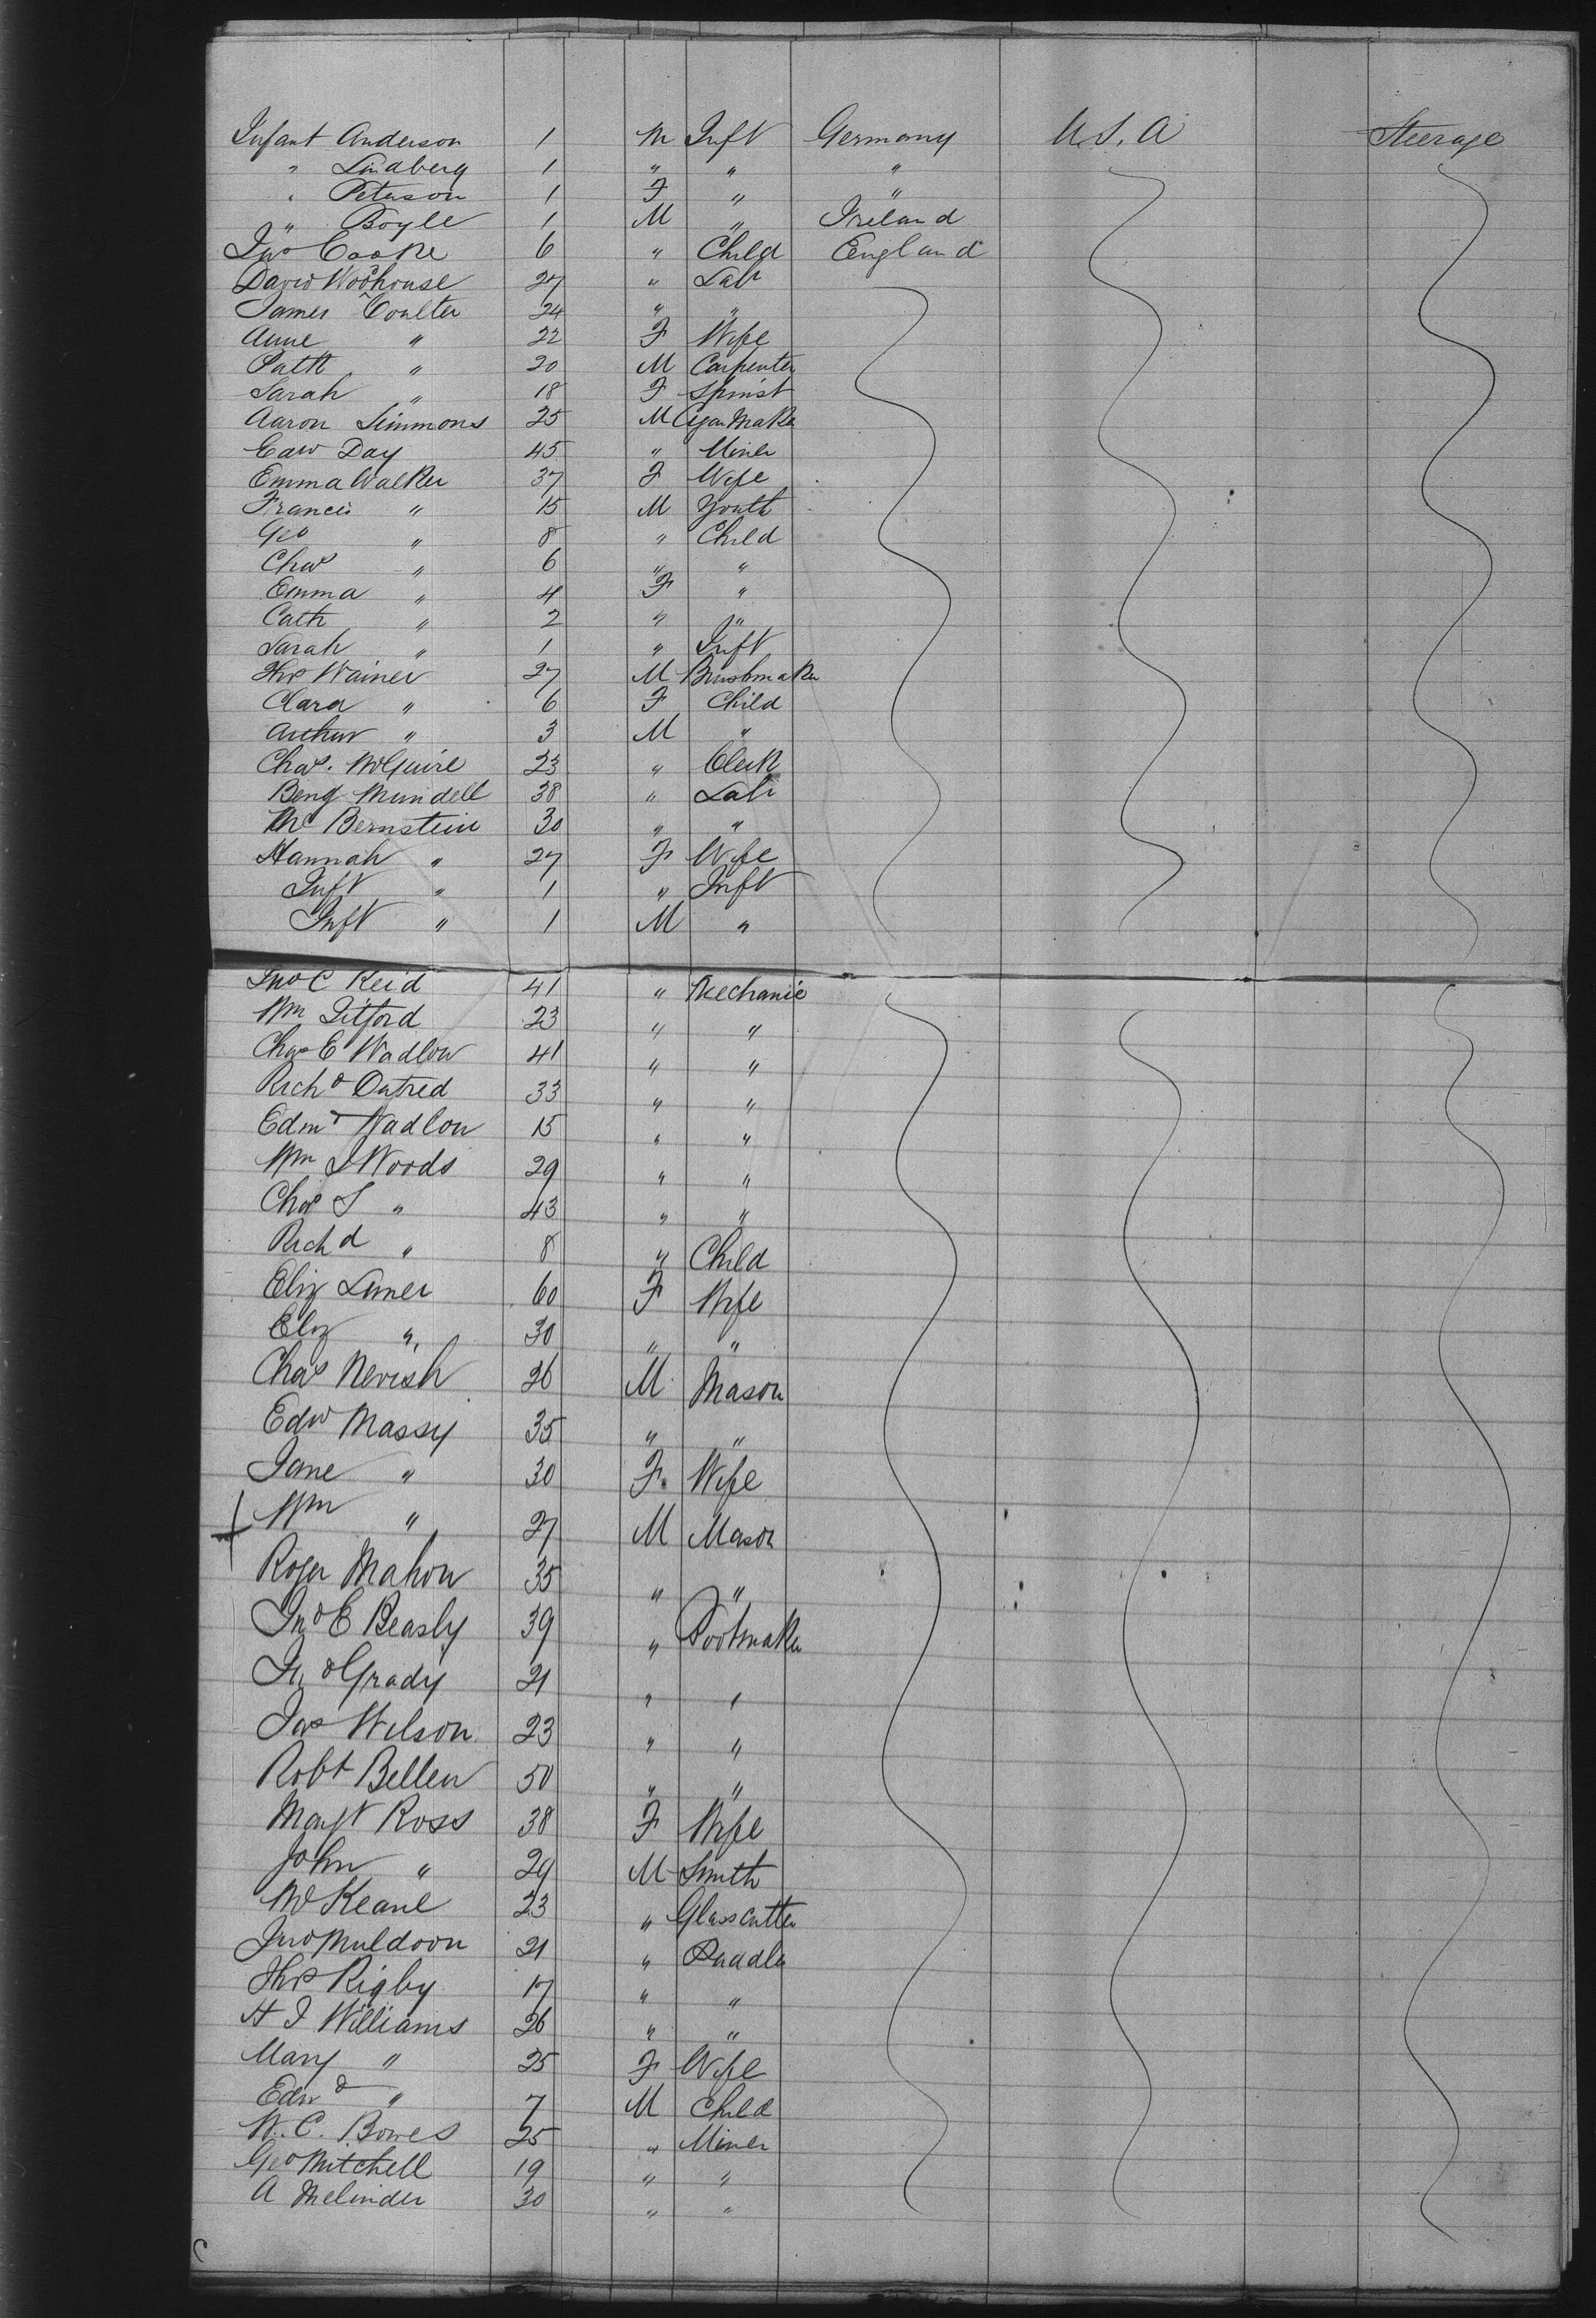 Infant Anderson 1 M Inft Germany U.S.A Steerage
" Lindberg 1 " " "
" Peterson 1 F " "
" Boyle 1 M " Ireland
Jno Cooke 6 " Child England
David Woodhouse 27 " Lab
James Coulter 24 " "
Anne " 22 F Wife
Patk " 20 M Carpenter
Sarah " 18 F Spinst
Aaron Simmons 25 M Cigar Maker
Edw Day 45 " Miner
Emma Walker 37 F Wife
Francis " 15 M Youth
Geo " 8 " Child
Chas " 6 " "
Emma " 4 F "
Cath " 2 " "
Sarah " 1 " Inft
Thos Wainer 27 M Brushmaker
Clara " 6 F Child
Arthur " 3 M "
Chas. McGuire 23 " Clerk
Benj Mundell 38 " Lab
Bernstein 30 " "
Hannah " 27 F Wife
Inft " 1 " Inft
Inft " 1 M "
Jno C Reid 41 " Mechanic
Wm Titford 23 " "
Chas E Wadlow 41 " "
Richd Outred 33 " "
Edmd Wadlow 15 " "
Wm J Woods 29 " "
Chas S " 43 " "
Richd " 8 " Child
Eliz Luner 60 F Wife
Eliz " 30 " "
Chas Nevish 26 M Mason
Edw Massy 35 " "
Jane " 30 F Wife
Wm " 27 M Mason
Roger Mahon 35 " "
Jno E Beasly 39 " Bootmaker
Jno Grady 21 " "
Jas Wilson 23 " "
Robt Bellew 50 " "
Margt Ross 38 F Wife
John " 29 M Smith
Keane 23 " Glasscutter
Jno Muldoon 21 " Puddler
Thos Rigby 17 " "
H J Williams 26 " "
Mary " 25 F Wife
Edwd " 7 M Child
W. C. Bowes 25 " Miner
Geo Mitchell 19 " "
A Melinder 30 " "